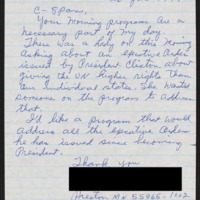 C-Span,
Your Morning program are a
necessary part of my day.
There was a lady on this morn
asking about an
issued by President Clinton about
giving the UN higher rights than
our individual states. She wants
someone on the program to address
that.
I'd like a program that would
address all the
he has issued since becoming
President.
Thank you
MN 55965-1102